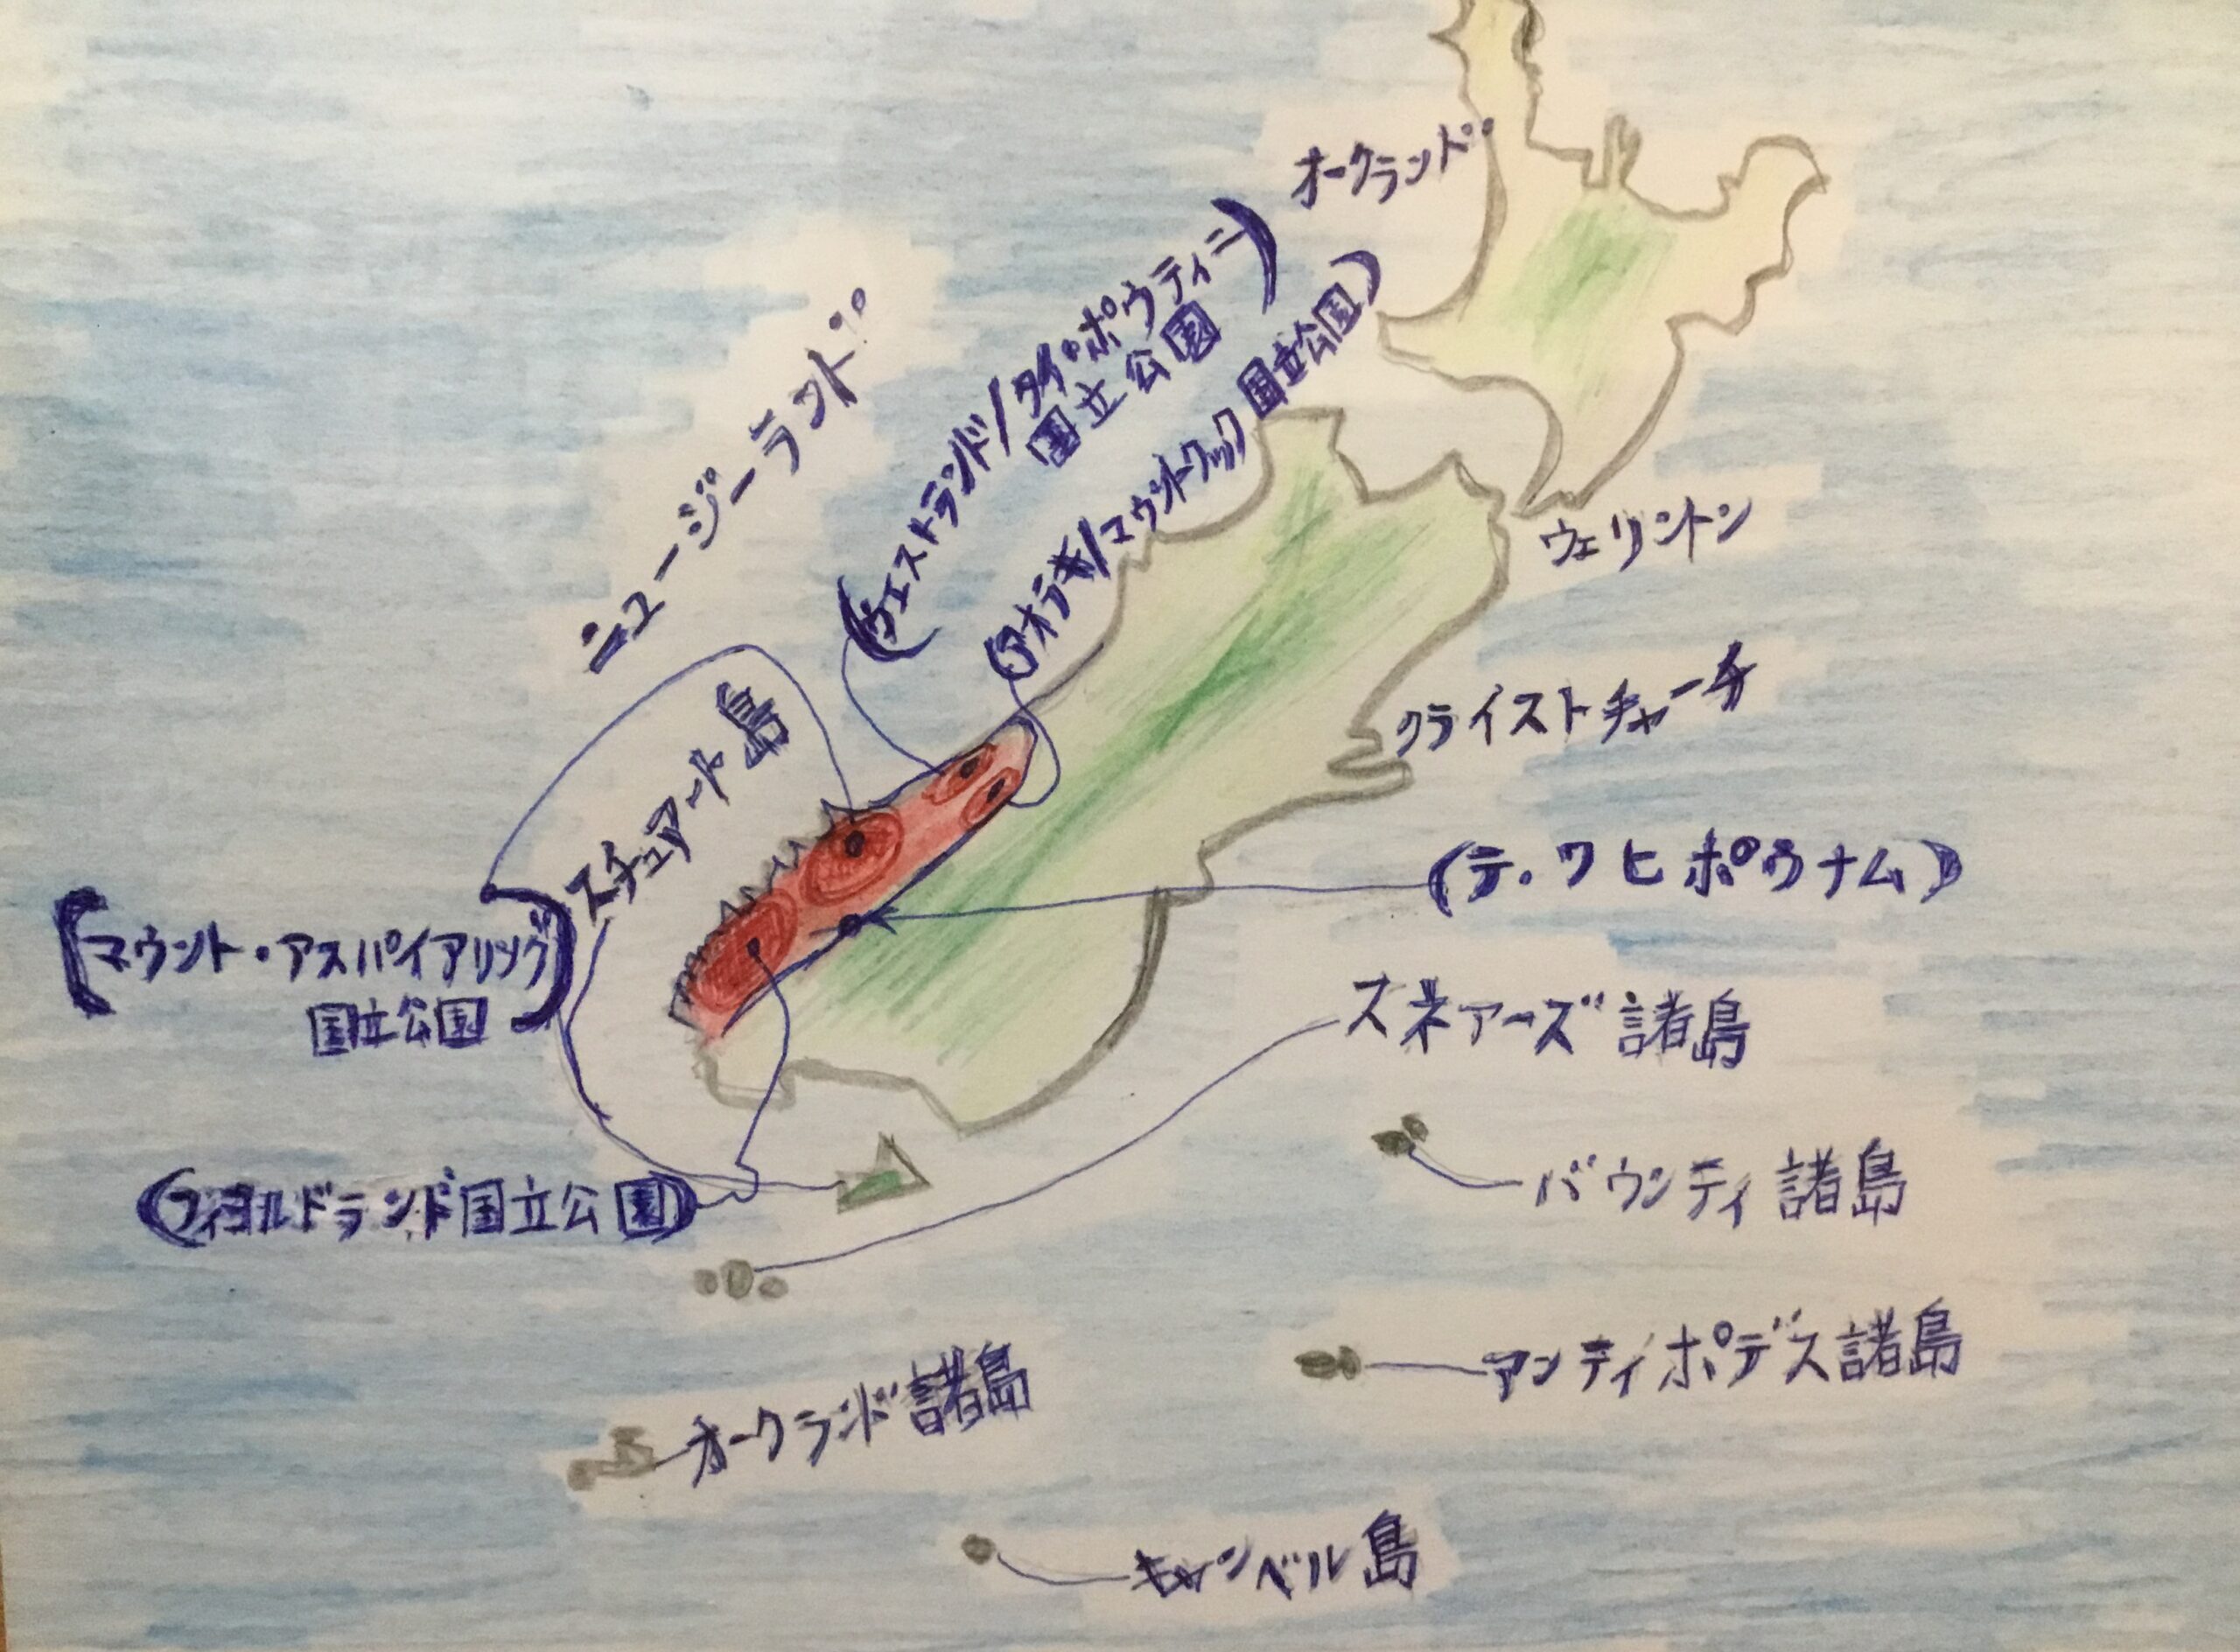 オークランド
ニュージーランド
(ウェストランド/タイ・ポウティニ)
国立公園
(アオラキ/マウントクック国立公園)
ウェリントン
クライストチャーチ
スチュアート島
(テ・ワヒポウナム)
(マウント・アスパイアリング)
国立公園
スネアーズ諸島
バウンティ諸島
(フィヨルドランド国立公園)
アンティポデス諸島
オークランド諸島
キャンベル島